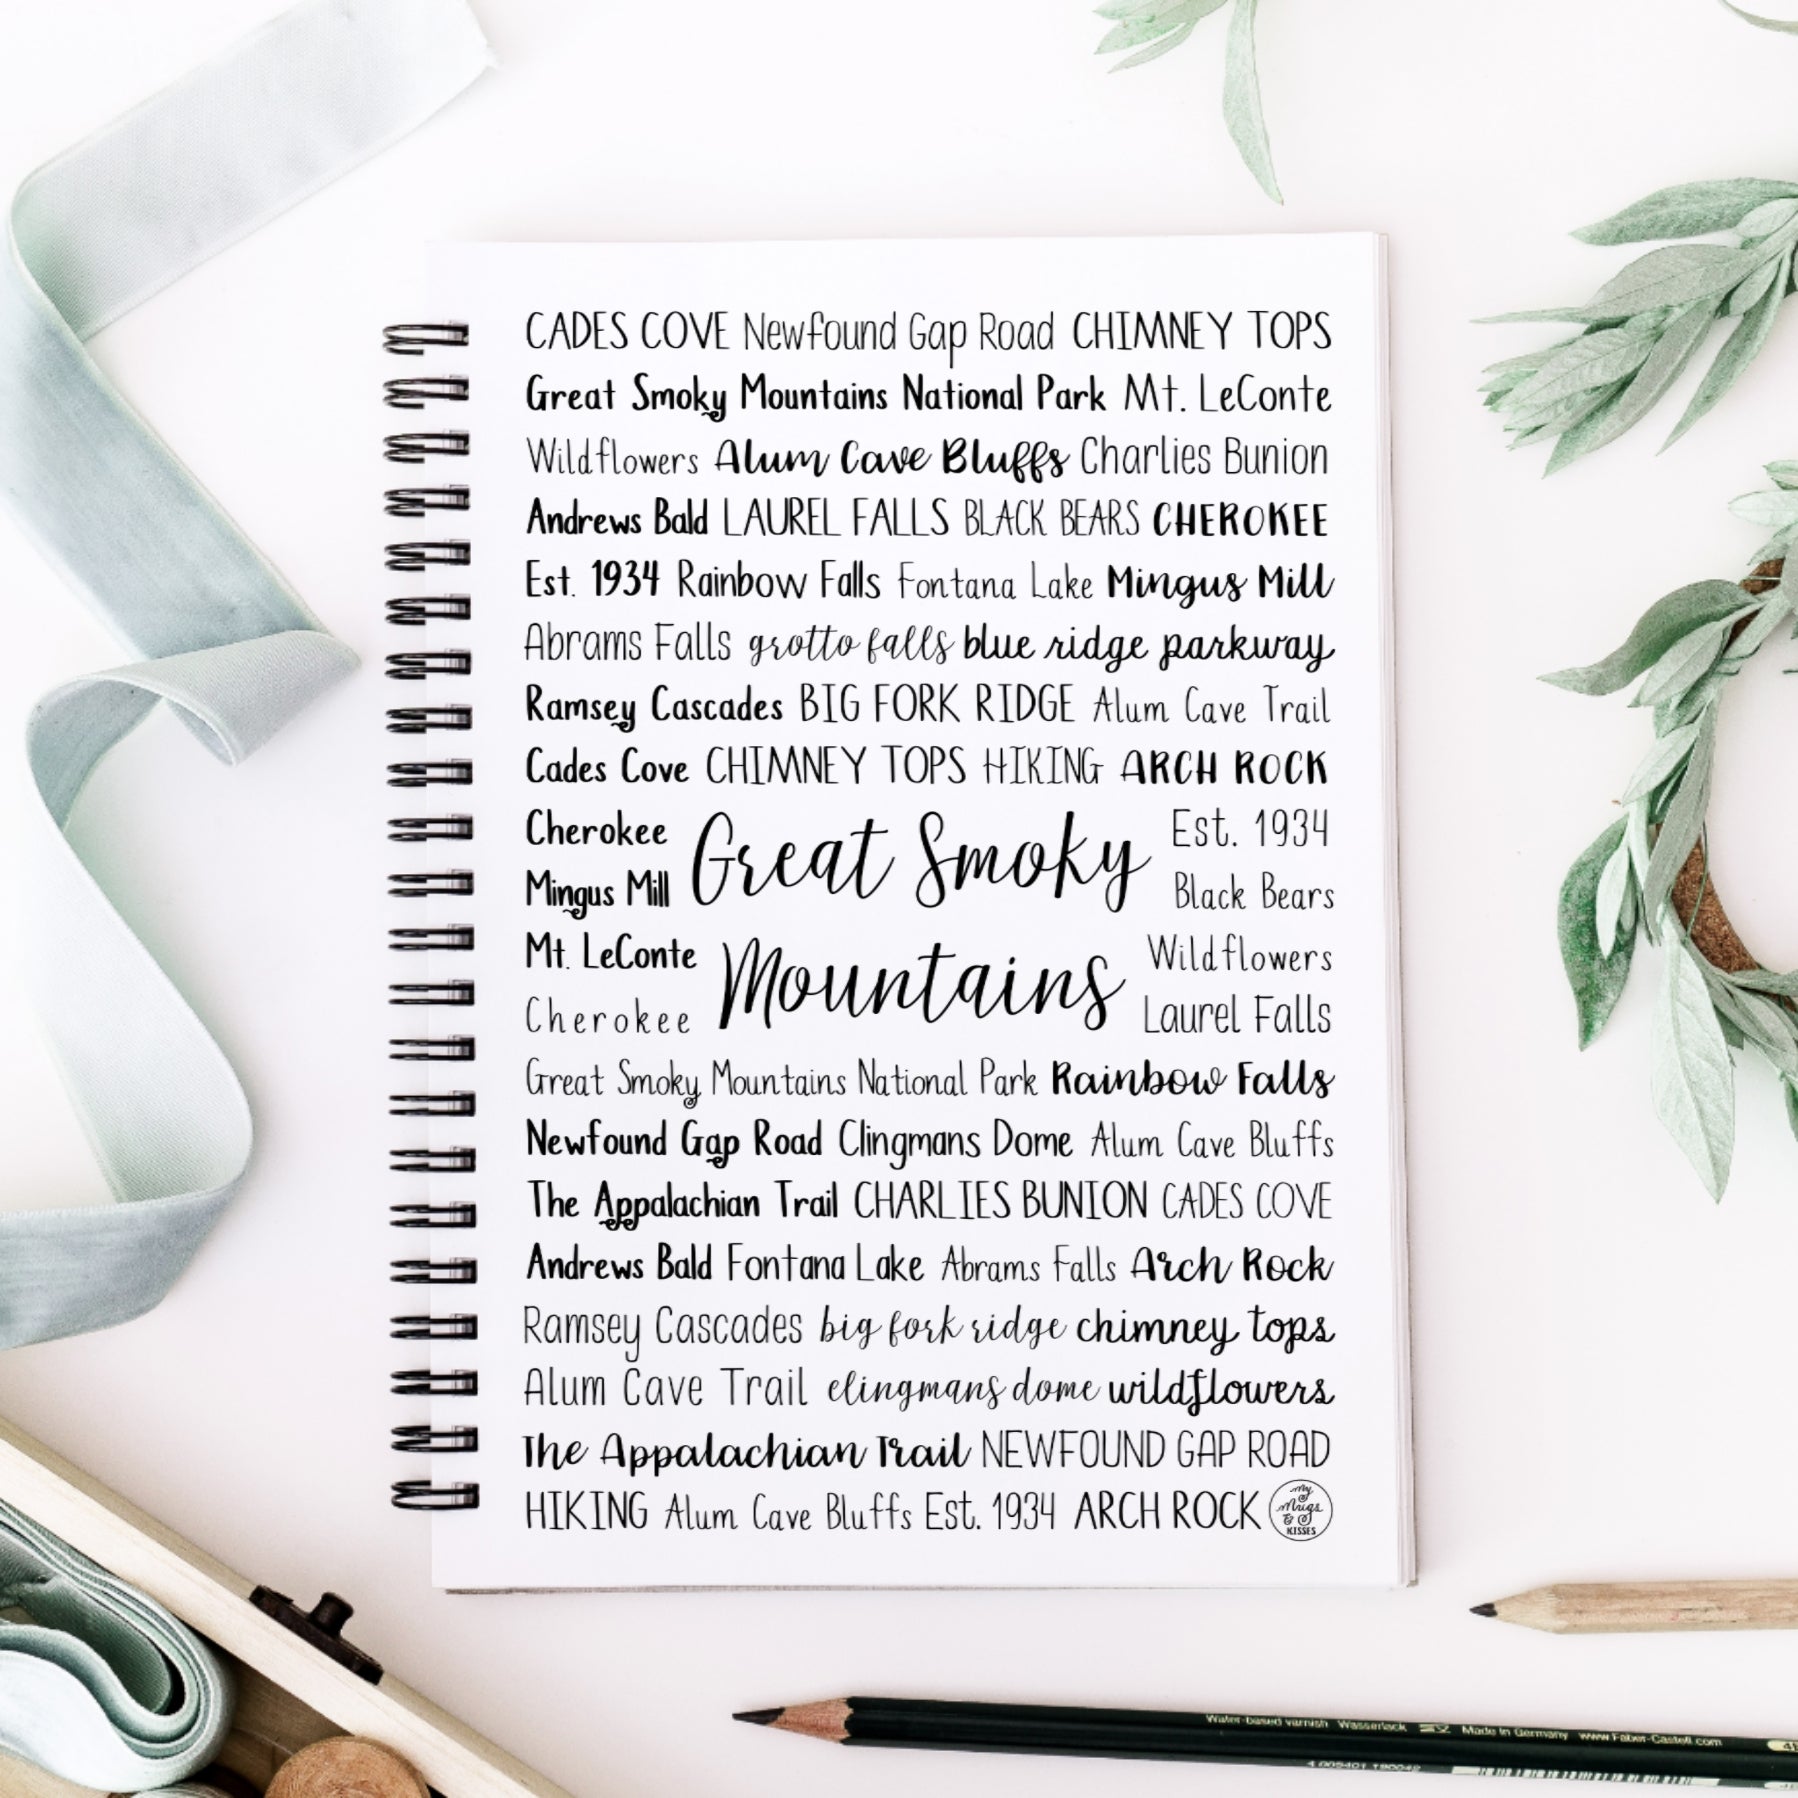 CADES COVE Newfound Gap Road CHIMNEY TOPS
Great Smoky Mountains National Park Mt. LeConte
Wildflowers Alum Cave Bluffs Charlies Bunion
Andrews Bald LAUREL FALLS BLACK BEARS CHEROKEE
Est. 1934 Rainbow Falls Fontana Lake Mingus Mill
Abrams Falls grotto falls blue ridge parkway
Ramsey Cascades BIG FORK RIDGE Alum Cave Trail
Cades Cove CHIMNEY TOPS HIKING ARCH ROCK
Cherokee Great Smoky Est. 1934
Mingus Mill Black Bears
Mt. LeConte Mountains Wildflowers
Cherokee Laurel Falls
Great Smoky Mountains National Park Rainbow Falls
Newfound Gap Road Clingmans Dome Alum Cave Bluffs
The Appalachian Trail CHARLIES BUNION CADES COVE
Andrews Bald Fontana Lake Abrams Falls Arch Rock
Ramsey Cascades big fork ridge chimney tops
Alum Cave Trail clingmans dome wildflowers
The Appalachian Trail NEWFOUND GAP ROAD
HIKING Alum Cave Bluffs Est. 1934 ARCH ROCK
My
Mugs
&
KISSES
Water-based varnish Wasserlack Made in Germany www.Faber-Castell.com
4 005401 190042